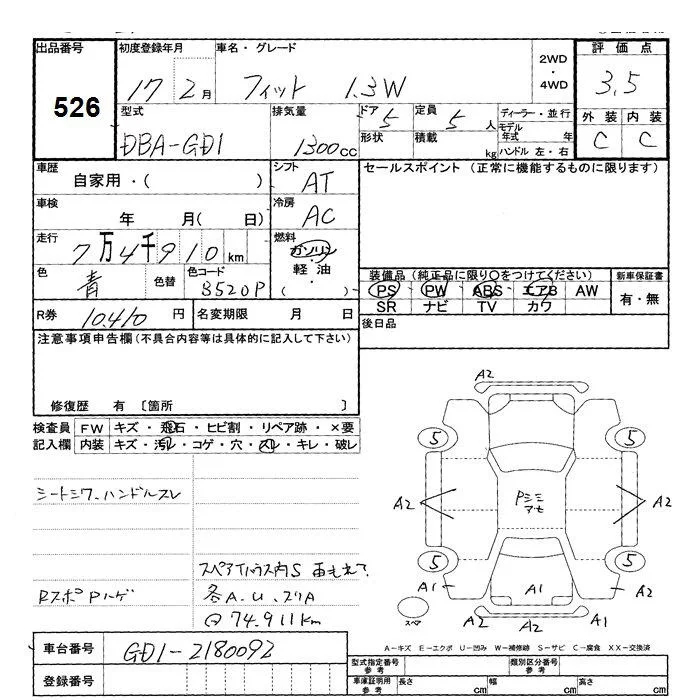 出品番号 初度登録年月 車名・グレード 2WD・4WD 評価点
526 17 2月 フィット 1.3W 3.5
型式 排気量 ドア 5 定員 5人 ディーラー・並行 外装 内装
DBA-GD1 1300cc 形状 積載 kg モデル年式 年 C C
ハンドル 左・右
車歴 シフト セールスポイント (正常に機能するものに限ります)
自家用・( ) AT
車検 冷房
年 月( 日) AC
走行 燃料
7万4千910km ガソリン・軽油・( )
色 色替 色コード 装備品 (純正品に限り〇をつけてください) 新車保証書
青 B520P PS PW ABS エアB AW 有・無
SR ナビ TV カワ
R券 10410円 名変期限 月 日 後日品
注意事項申告欄 (不具合内容等は具体的に記入して下さい)
修復歴 有 〔箇所 〕
検査員 FW キズ・飛石・ヒビ割・リペア跡・×要
記入欄 内装 キズ・汚レ・コゲ・穴・スレ・キレ・破レ
シートシワ、ハンドルスレ
RスポPハゲ
各A.U.スリA
@74.911km
A2
A2
5 5
A2 Pシミ A2
アセ
5 5
A1 A1 A2
スペア A2 A2 A1
車台番号 GD1-2180092
登録番号
A-キズ E-エクボ U-凹み W-補修跡 S-サビ C-腐食 XX-交換済
型式指定番号 参考 類別区分番号 参考
車庫証明用 参考 長さ cm 幅 cm 高さ cm